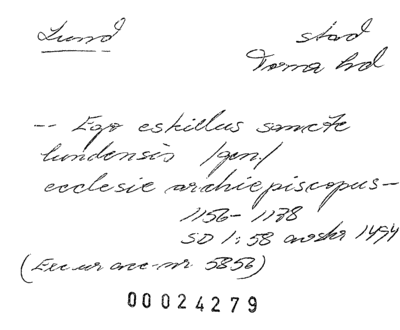 Lund stad
Torna hd
-- Ego eskillus sancte
lundensis /gen/
ecclesie archiepiscopus -
1156-1178
SD 1:58 avskr 1494
(Exc ur acc-nr 5856)
00024279